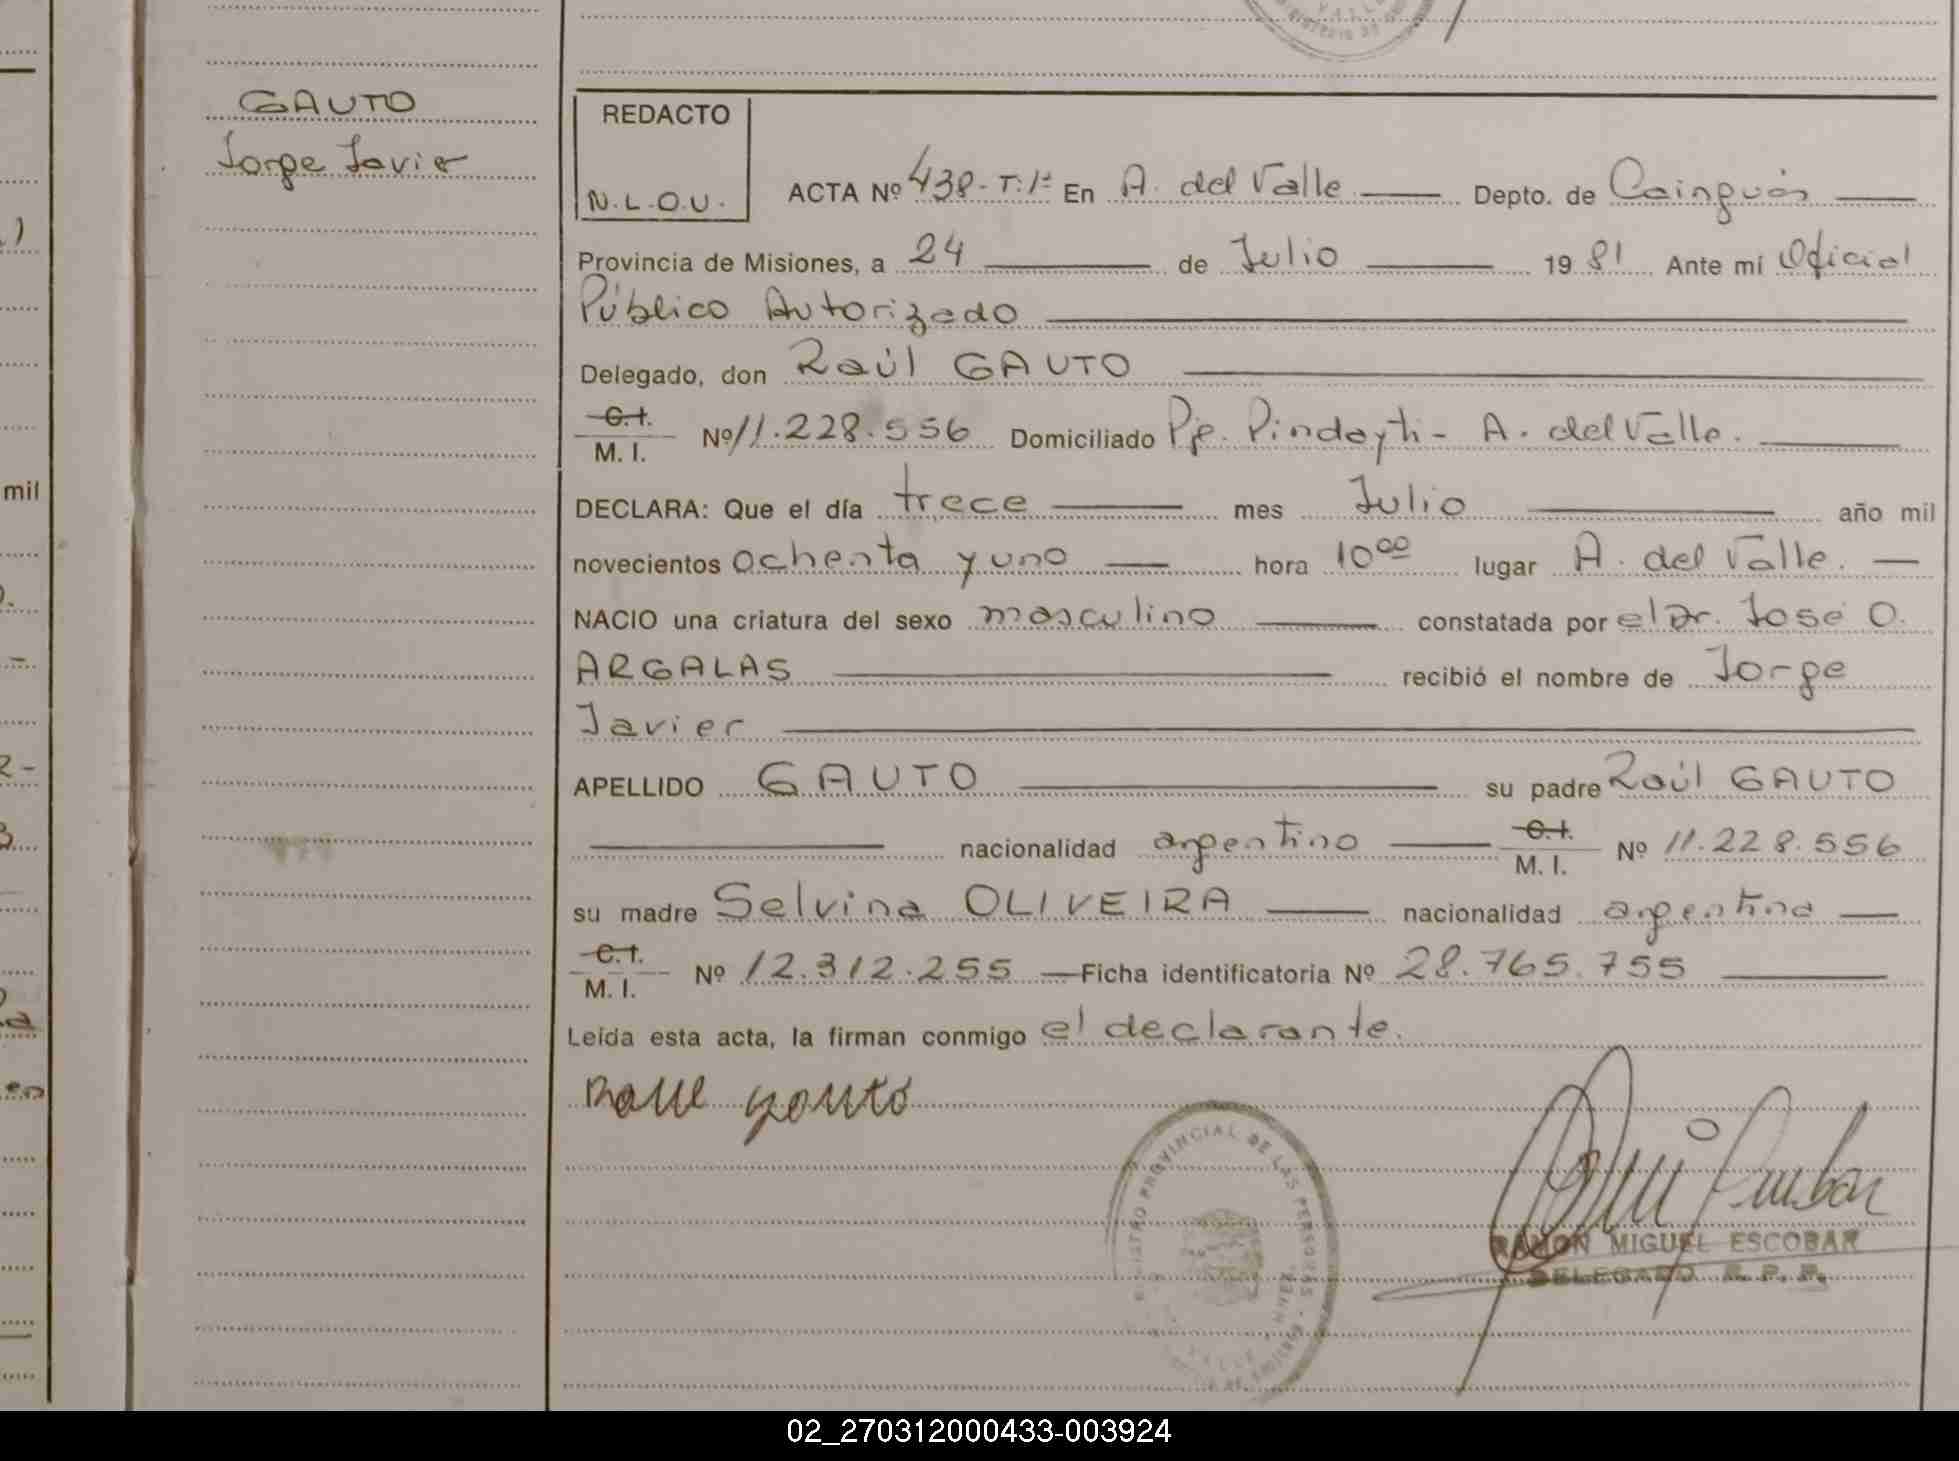 GAUTO
Jorge Javier
REDACTO
N.L.O.U.
ACTA Nº 438-T:1ª En A. del Valle Depto. de Cainguás
Provincia de Misiones, a 24 de Julio 1981 Ante mi Oficial
Público Autorizado
Delegado, don Raúl GAUTO
C.I.
M. I. Nº 11.228.556 Domiciliado Pje. Pindayti - A. del Valle.
DECLARA: Que el día trece mes Julio año mil
novecientos ochenta y uno hora 10⁰⁰ lugar A. del Valle.
NACIO una criatura del sexo masculino constatada por el Dr. José O.
ARGALAS recibió el nombre de Jorge
Javier
APELLIDO GAUTO su padre Raúl GAUTO
nacionalidad argentino C.I. M. I. Nº 11.228.556
su madre Selvina OLIVEIRA nacionalidad argentina
C.I.
M. I. Nº 12.312.255 Ficha identificatoria Nº 28.765.755
Leída esta acta, la firman conmigo el declarante.
Raul gauto
REGISTRO PROVINCIAL DE LAS PERSONAS
VALLE
RAMON MIGUEL ESCOBAR
DELEGADO R. P. P.
mil
02_270312000433-003924